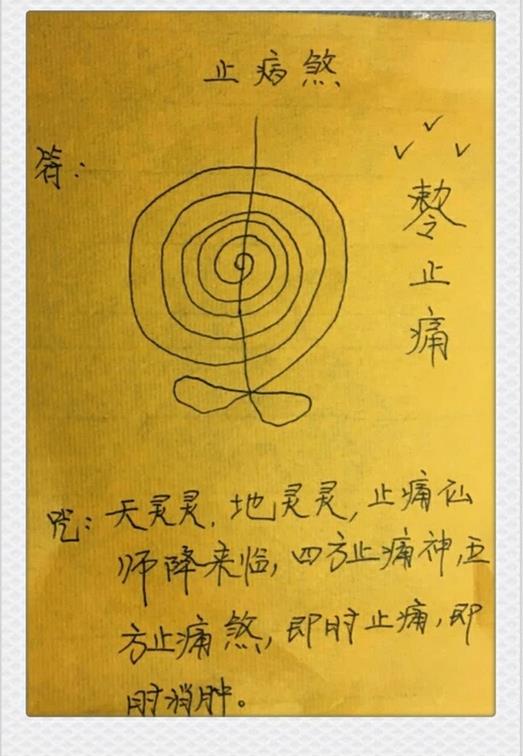 止病煞
符：
敕令
止
痛
咒：天灵灵，地灵灵，止痛仙
师降来临，四方止痛神，五
方止痛煞，即时止痛，即
时消肿。